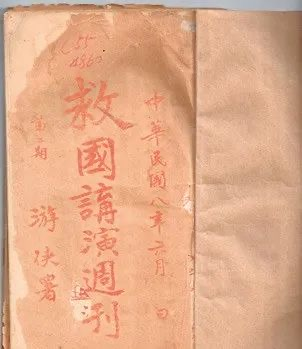 中華民國八年六月 日
救國講演週刋
第二期
游俠署